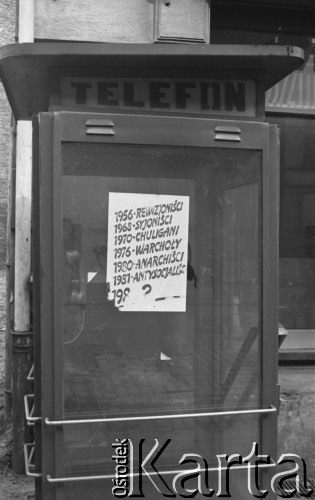 TELEFON
1956-REWIZJONIŚCI
1968-SYJONIŚCI
1970-CHULIGANI
1976-WARCHOŁY
1980-ANARCHIŚCI
1981-ANTYSOCJALIŚĆ
198 ?
Ośrodek Karta